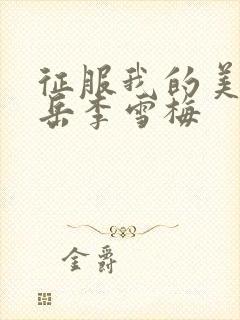 征服我的美
岳李雪梅
金爵